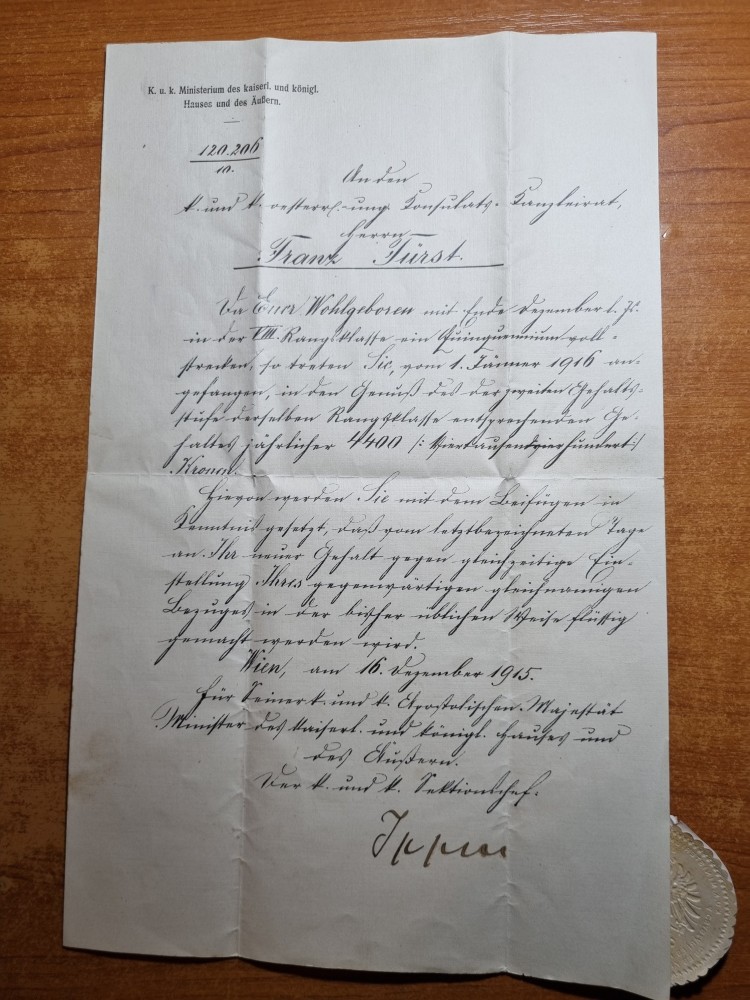 K. u. k. Ministerium des kaiserl. und königl.
Hauses und des Äußern.
120.206
10.
An den
k. und k. oesterr.-ung. Konsulats-Kanzleirat,
Herrn
Franz Fürst.
Da Euer Wohlgeboren mit Ende Dezember l. Js.
in der VIII. Rangsklasse ein Quinquennium voll-
strecken, so treten Sie, vom 1. Jänner 1916 an-
gefangen, in den Genuß des der zweiten Gehalts-
stufe derselben Rangsklasse entsprechenden Ge-
haltes jährlicher 4400 /: Viertausendvierhundert :/
Kronen.
Hievon werden Sie mit dem Beifügen in
Kenntnis gesetzt, daß vom letztbezeichneten Tage
an Ihr neuer Gehalt gegen gleichzeitige Ein-
stellung Ihres gegenwärtigen gleichnamigen
Bezuges in der bisher üblichen Weise flüssig
gemacht werden wird.
Wien, am 16. Dezember 1915.
Für Seiner k. und k. Apostolischen Majestät
Minister des kaiserl. und königl. Hauses und
des Äußern.
Der k. und k. Sektionschef: